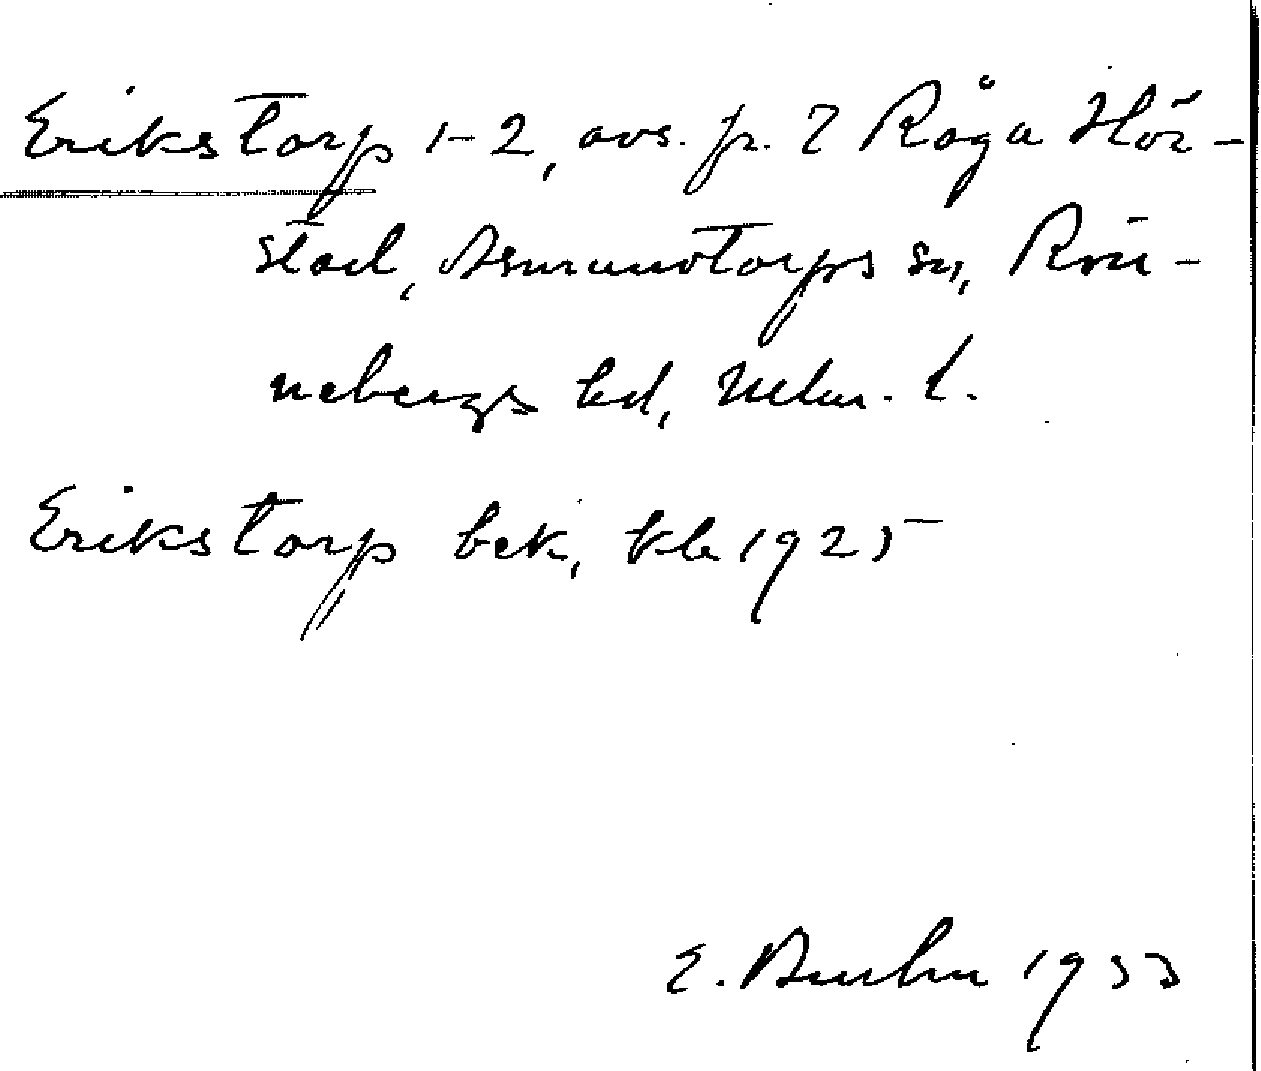 Erikstorp 1-2, avs. fr. 7 Råga Hör-
stad, Asmundtorps sn, Rön-
nebergs hd, Mlm. l.
Erikstorp bek, kb 1925
E. Buhn 1933